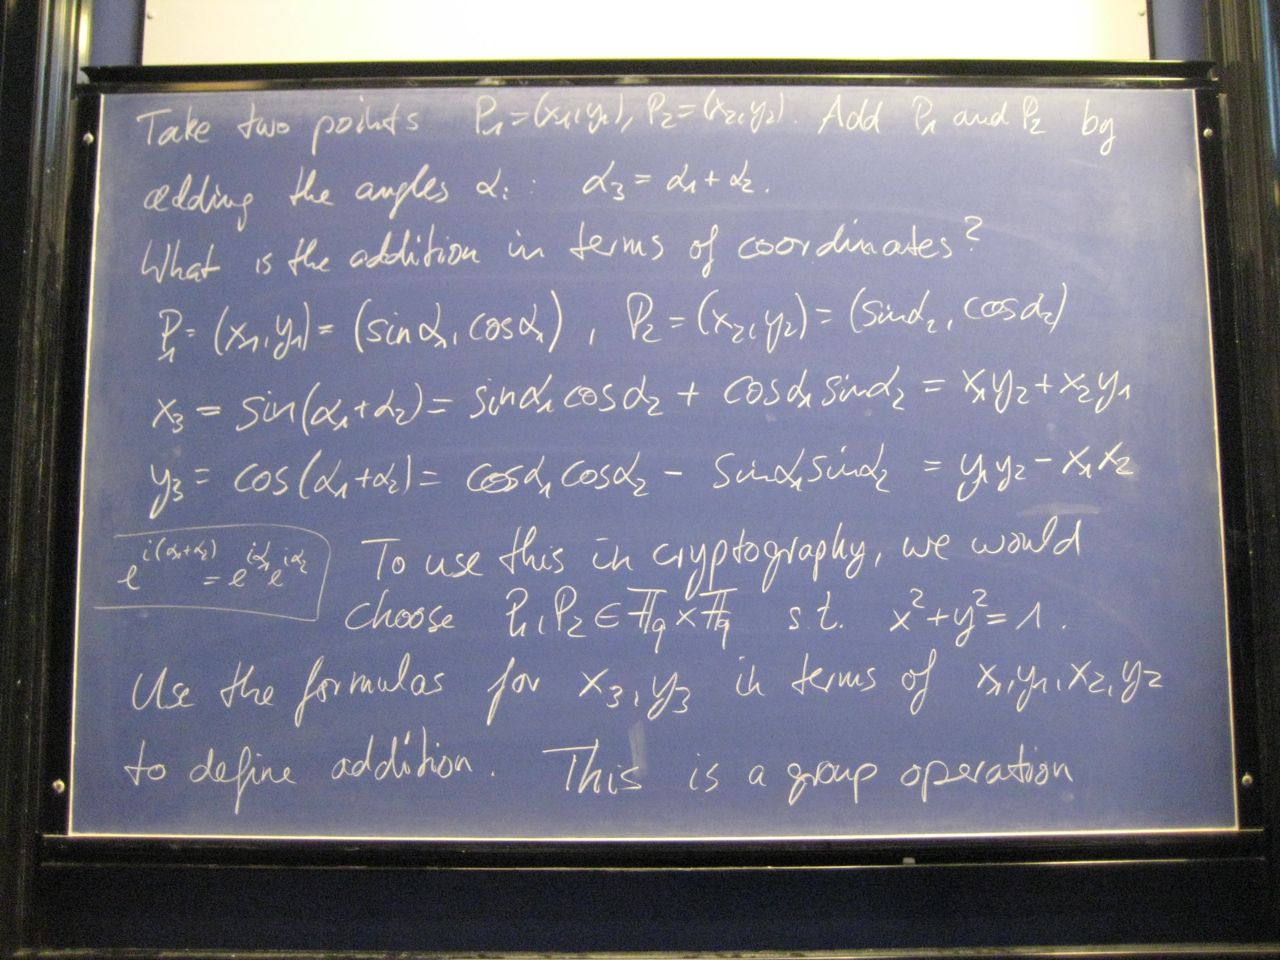 Take two points P₁=(x₁,y₁), P₂=(x₂,y₂). Add P₁ and P₂ by
adding the angles αᵢ: α₃ = α₁ + α₂.
What is the addition in terms of coordinates?
P₁ = (x₁,y₁) = (sin α₁, cos α₁), P₂ = (x₂,y₂) = (sin α₂, cos α₂)
x₃ = sin(α₁+α₂) = sin α₁ cos α₂ + cos α₁ sin α₂ = x₁y₂ + x₂y₁
y₃ = cos(α₁+α₂) = cos α₁ cos α₂ − sin α₁ sin α₂ = y₁y₂ − x₁x₂
e^{i(α₁+α₂)} = e^{iα₁} e^{iα₂}
To use this in cryptography, we would
choose P₁, P₂ ∈ 𝔽_q × 𝔽_q s.t. x² + y² = 1.
Use the formulas for x₃, y₃ in terms of x₁, y₁, x₂, y₂
to define addition. This is a group operation